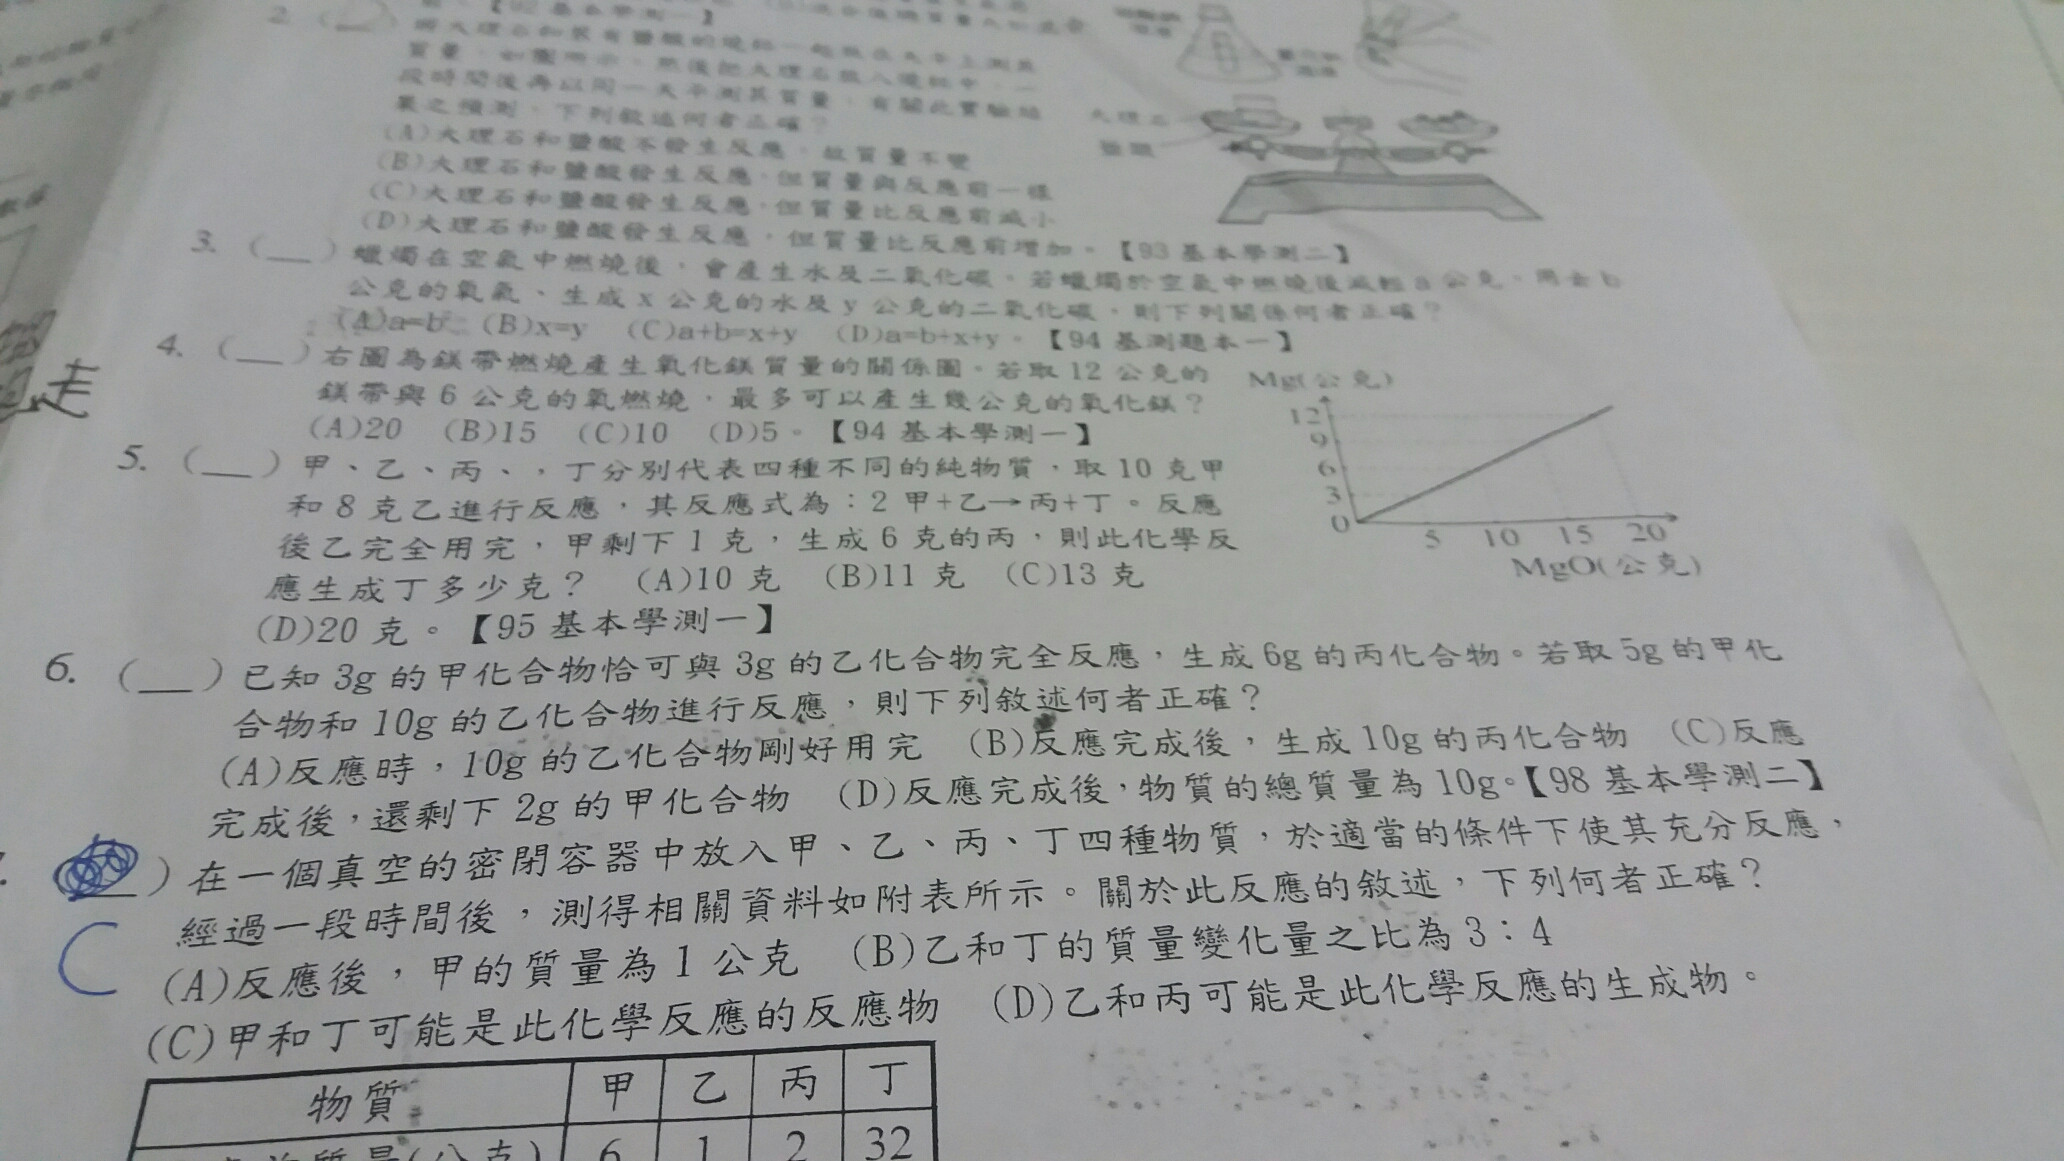 2.
質量,如圖所示,然後把大理石放入燒杯中,一
段時間後再以同一天平測其質量,有關此實驗結
果之預測,下列敘述何者正確?
(A)大理石和鹽酸不發生反應,故質量不變
(B)大理石和鹽酸發生反應,但質量與反應前一樣
(C)大理石和鹽酸發生反應,但質量比反應前減小
(D)大理石和鹽酸發生反應,但質量比反應前增加。【93 基本學測二】
3. (__)蠟燭在空氣中燃燒後,會產生水及二氧化碳。若蠟燭於空氣中燃燒後減輕 a 公克、用去 b
公克的氧氣、生成 x 公克的水及 y 公克的二氧化碳,則下列關係何者正確?
(A)a=b (B)x=y (C)a+b=x+y (D)a=b+x+y。【94 基測題本一】
4. (__)右圖為鎂帶燃燒產生氧化鎂質量的關係圖。若取 12 公克的
鎂帶與 6 公克的氧燃燒,最多可以產生幾公克的氧化鎂?
(A)20 (B)15 (C)10 (D)5。【94 基本學測一】
Mg(公克)
12
9
6
3
0
5 10 15 20
MgO(公克)
5. (__)甲、乙、丙、,丁分別代表四種不同的純物質,取 10 克甲
和 8 克乙進行反應,其反應式為:2 甲+乙→丙+丁。反應
後乙完全用完,甲剩下 1 克,生成 6 克的丙,則此化學反
應生成丁多少克? (A)10 克 (B)11 克 (C)13 克
(D)20 克。【95 基本學測一】
6. (__)已知 3g 的甲化合物恰可與 3g 的乙化合物完全反應,生成 6g 的丙化合物。若取 5g 的甲化
合物和 10g 的乙化合物進行反應,則下列敘述何者正確?
(A)反應時,10g 的乙化合物剛好用完 (B)反應完成後,生成 10g 的丙化合物 (C)反應
完成後,還剩下 2g 的甲化合物 (D)反應完成後,物質的總質量為 10g。【98 基本學測二】
)在一個真空的密閉容器中放入甲、乙、丙、丁四種物質,於適當的條件下使其充分反應,
C
經過一段時間後,測得相關資料如附表所示。關於此反應的敘述,下列何者正確?
(A)反應後,甲的質量為 1 公克 (B)乙和丁的質量變化量之比為 3:4
(C)甲和丁可能是此化學反應的反應物 (D)乙和丙可能是此化學反應的生成物。
物質 甲 乙 丙 丁
6 1 2 32
走